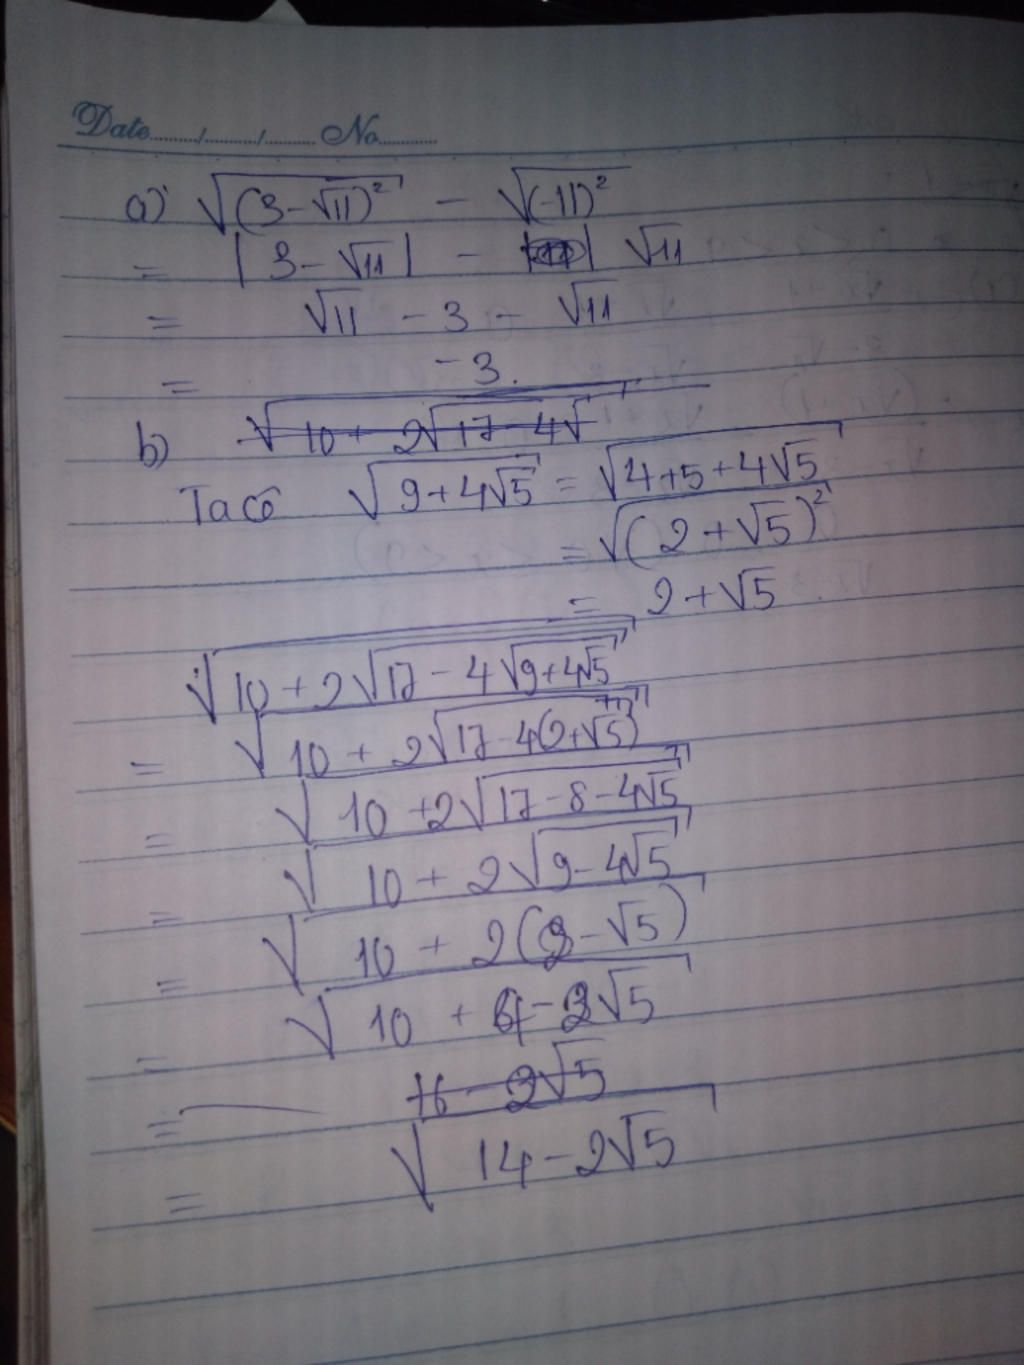 Date......../......../........ No..........
a) √(3-√11)² - √(-11)²
= |3-√11| - √11
= √11 - 3 - √11
= -3.
b) √10+ 2√17-4√
Ta có √9+4√5 = √4+5+4√5
= √(2+√5)²
= 2+√5
√10+2√17-4√9+4√5
= √10+2√17-4(2+√5)
= √10+2√17-8-4√5
= √10+2√9-4√5
= √10+2( -√5)
= √10+ - 2√5
= 16-2√5
= √14-2√5